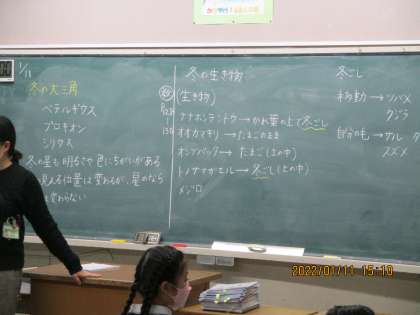 1/11
冬の大三角
ベテルギウス
プロキオン
シリウス
冬の星も明るさや色にちがいがある
見える位置は変わるが、星のなら
変わらない
冬の生き物
(生き物)
ナナホシテントウ→かれ葉の上で冬ごし
オオカマキリ→たまごのまま
オンブバッタ→たまご(土の中)
トノサマガエル→冬ごし(土の中)
メジロ
冬ごし
移動→ツバメ
クジラ
自分の毛→サル
スズメ
2022/01/11 15:19